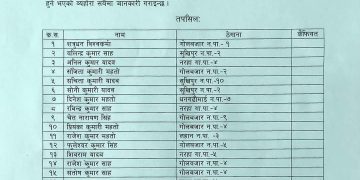 हुने भएको व्यहोरा सबैमा जानकारी गराइन्छ ।
तपसिल:
क.स. नाम ठेगाना कैफियत
१ शत्रुधन विश्वकर्मा गोलबजार न.पा. -१
२ वसिन्द्र कुमार साह सुखिपुर न.पा.-२
३ अनिल कुमार यादव नरहा गा.पा.-४
४ संजिता कुमारी साह गोलबजार न.पा.-४
५ सबिता कुमारी यादव सुखिपुर न.पा.-१०
६ सोनी कुमारी यादव सुखिपुर न.पा.-२
७ दिनेश कुमार महतो धनगढीमाई न.पा.-७
८ रबिन्द्र कुमार साह नरहा गा.पा.-४
९ चेत नारायण सिंह गोलबजार न.पा.-९
१० प्रियंका कुमारी महतो गोलबजार न.पा.-४
११ राजेश कुमार महतो लहान न.पा. -३
१२ फुलेश्वर कुमार सिंह गोलबजार न.पा.-४
१३ शिवराम यादव नरहा गा.पा.-५
१४ राजेश कुमार साह गोलबजार न.पा.-४
१५ संतोष कुमार साह गोलबजार न.पा.-४